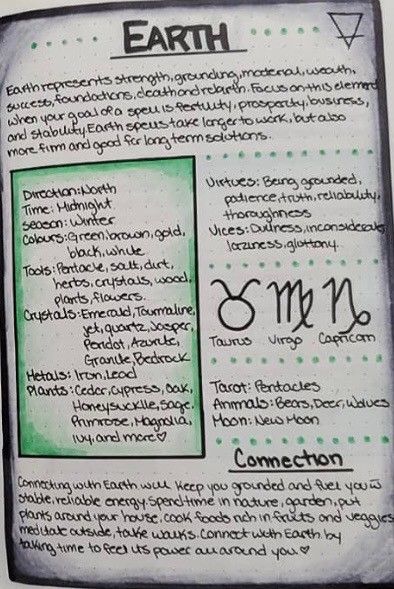 EARTH
Earth represents strength, grounding, material, wealth,
success, foundations, death and rebirth. Focus on this element
when your goal of a spell is fertility, prosperity, business,
and stability. Earth spells take longer to work, but also
more firm and good for long term solutions.
Direction: North
Time: Midnight
Season: Winter
Colours: Green, brown, gold,
black, white
Tools: Pentacle, salt, dirt,
herbs, crystals, wood,
plants, flowers.
Crystals: Emerald, Tourmaline,
jet, quartz, Jasper,
Peridot, Azurite,
Granite, Bedrock
Metals: Iron, Lead
Plants: Ceder, Cypress, Oak,
Honeysucklle, Sage,
Primrose, Magnolia,
Ivy, and more ♡
Virtues: Being grounded,
patience, truth, reliability,
thoroughness
Vices: Dullness, inconsiderate,
laziness, gluttony.
♉ ♍ ♑
Taurus Virgo Capricorn
Tarot: Pentacles
Animals: Bears, Deer, Wolves
Moon: New Moon
Connection
Connecting with Earth will keep you grounded and fuel you w
stable, reliable energy. Spend time in nature, garden, put
plants around your house, cook foods rich in fruits and veggies
meditate outside, take walks. Connect with Earth by
taking time to feel its power all around you. ♡